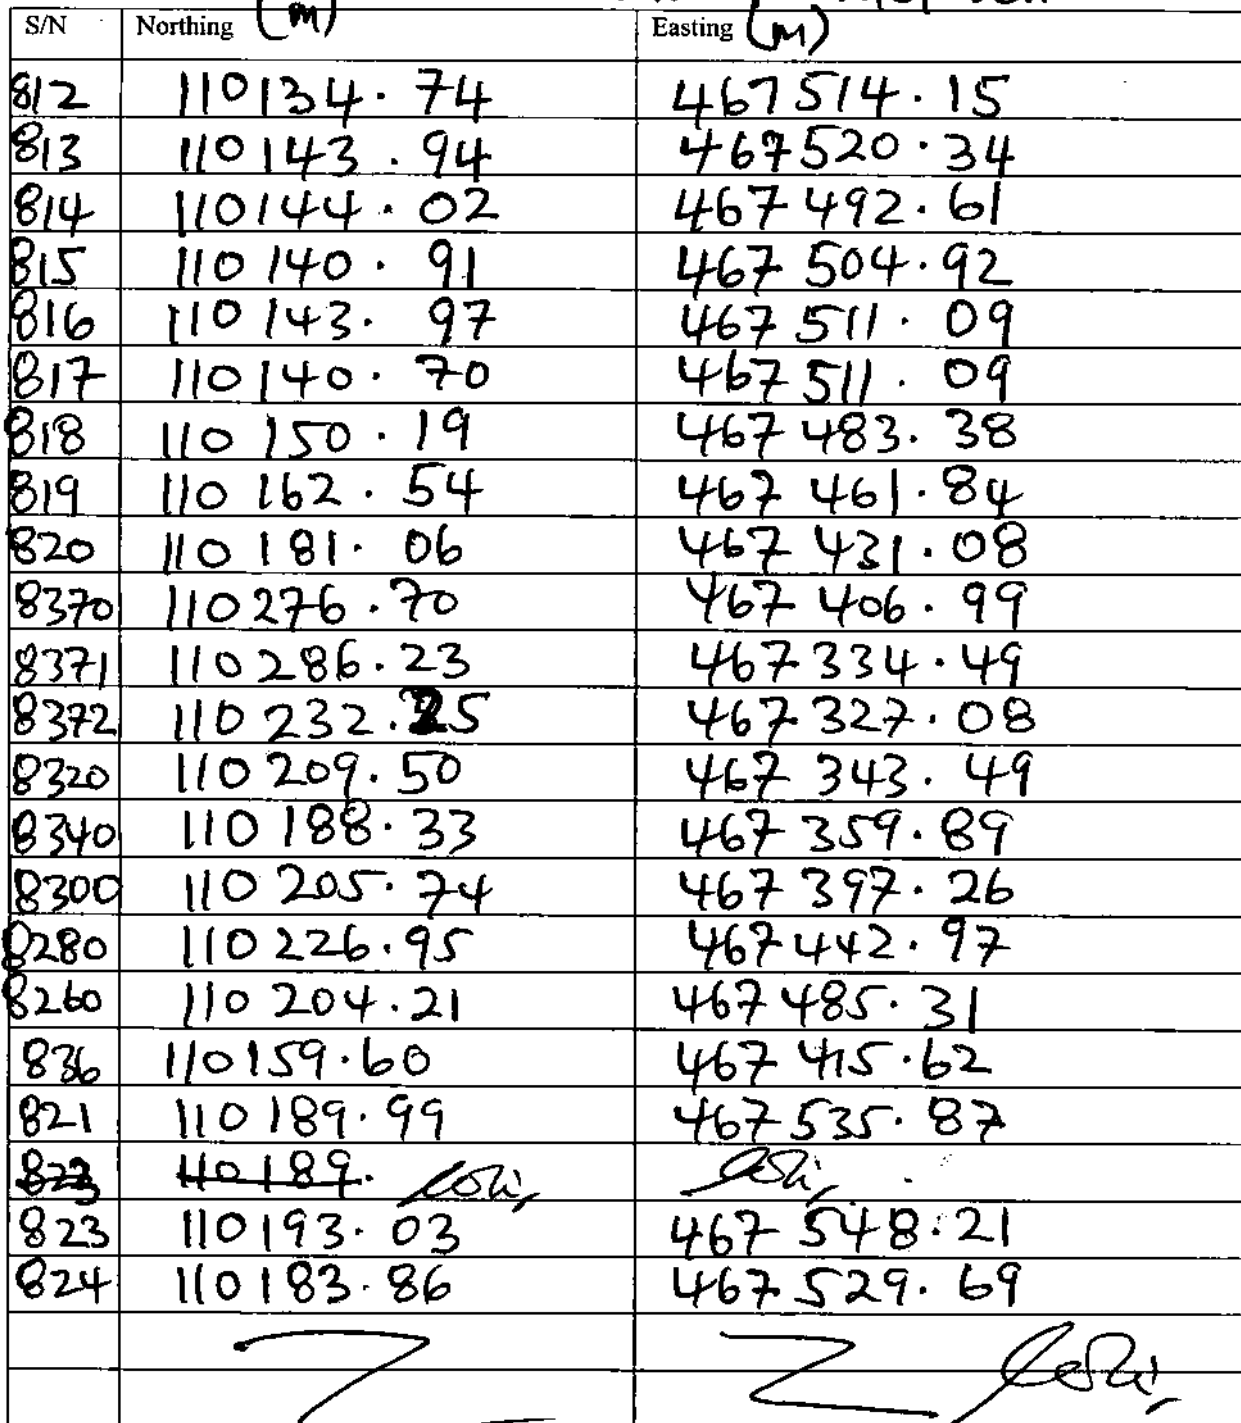 S/N Northing (m) Easting (m)
812 110134.74 467514.15
813 110143.94 467520.34
814 110144.02 467492.61
815 110140.91 467504.92
816 110143.97 467511.09
817 110140.70 467511.09
818 110150.19 467483.38
819 110162.54 467461.84
820 110181.06 467431.08
8370 110276.70 467406.99
8371 110286.23 467334.49
8372 110232.25 467327.08
8320 110209.50 467343.49
8340 110188.33 467359.89
8300 110205.74 467397.26
8280 110226.95 467442.97
8260 110204.21 467485.31
836 110159.60 467415.62
821 110189.99 467535.87
823 110189.
823 110193.03 467548.21
824 110183.86 467529.69